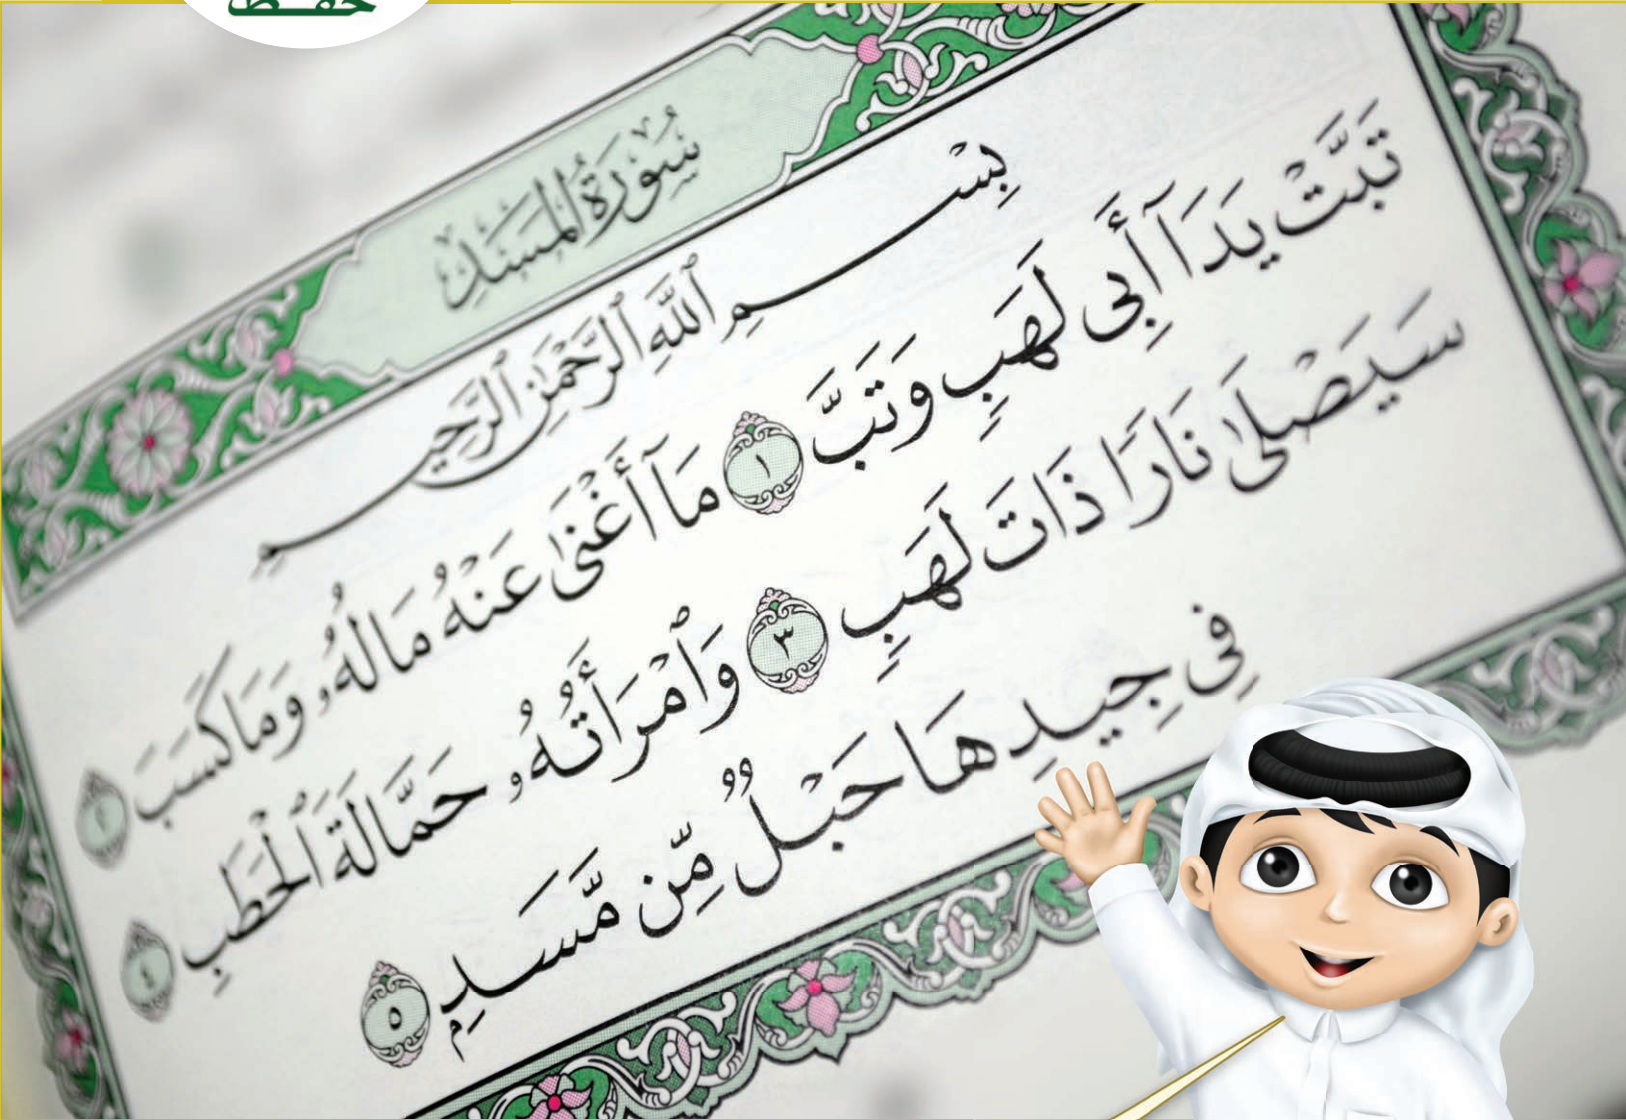 حفظ
سُورَةُ المَسَدِ
بِسْمِ ٱللَّهِ ٱلرَّحْمَٰنِ ٱلرَّحِيمِ
تَبَّتْ يَدَآ أَبِى لَهَبٍ وَتَبَّ ١ مَآ أَغْنَىٰ عَنْهُ مَالُهُۥ وَمَا كَسَبَ ٢
سَيَصْلَىٰ نَارًا ذَاتَ لَهَبٍ ٣ وَٱمْرَأَتُهُۥ حَمَّالَةَ ٱلْحَطَبِ ٤
فِى جِيدِهَا حَبْلٌ مِّن مَّسَدٍۭ ٥